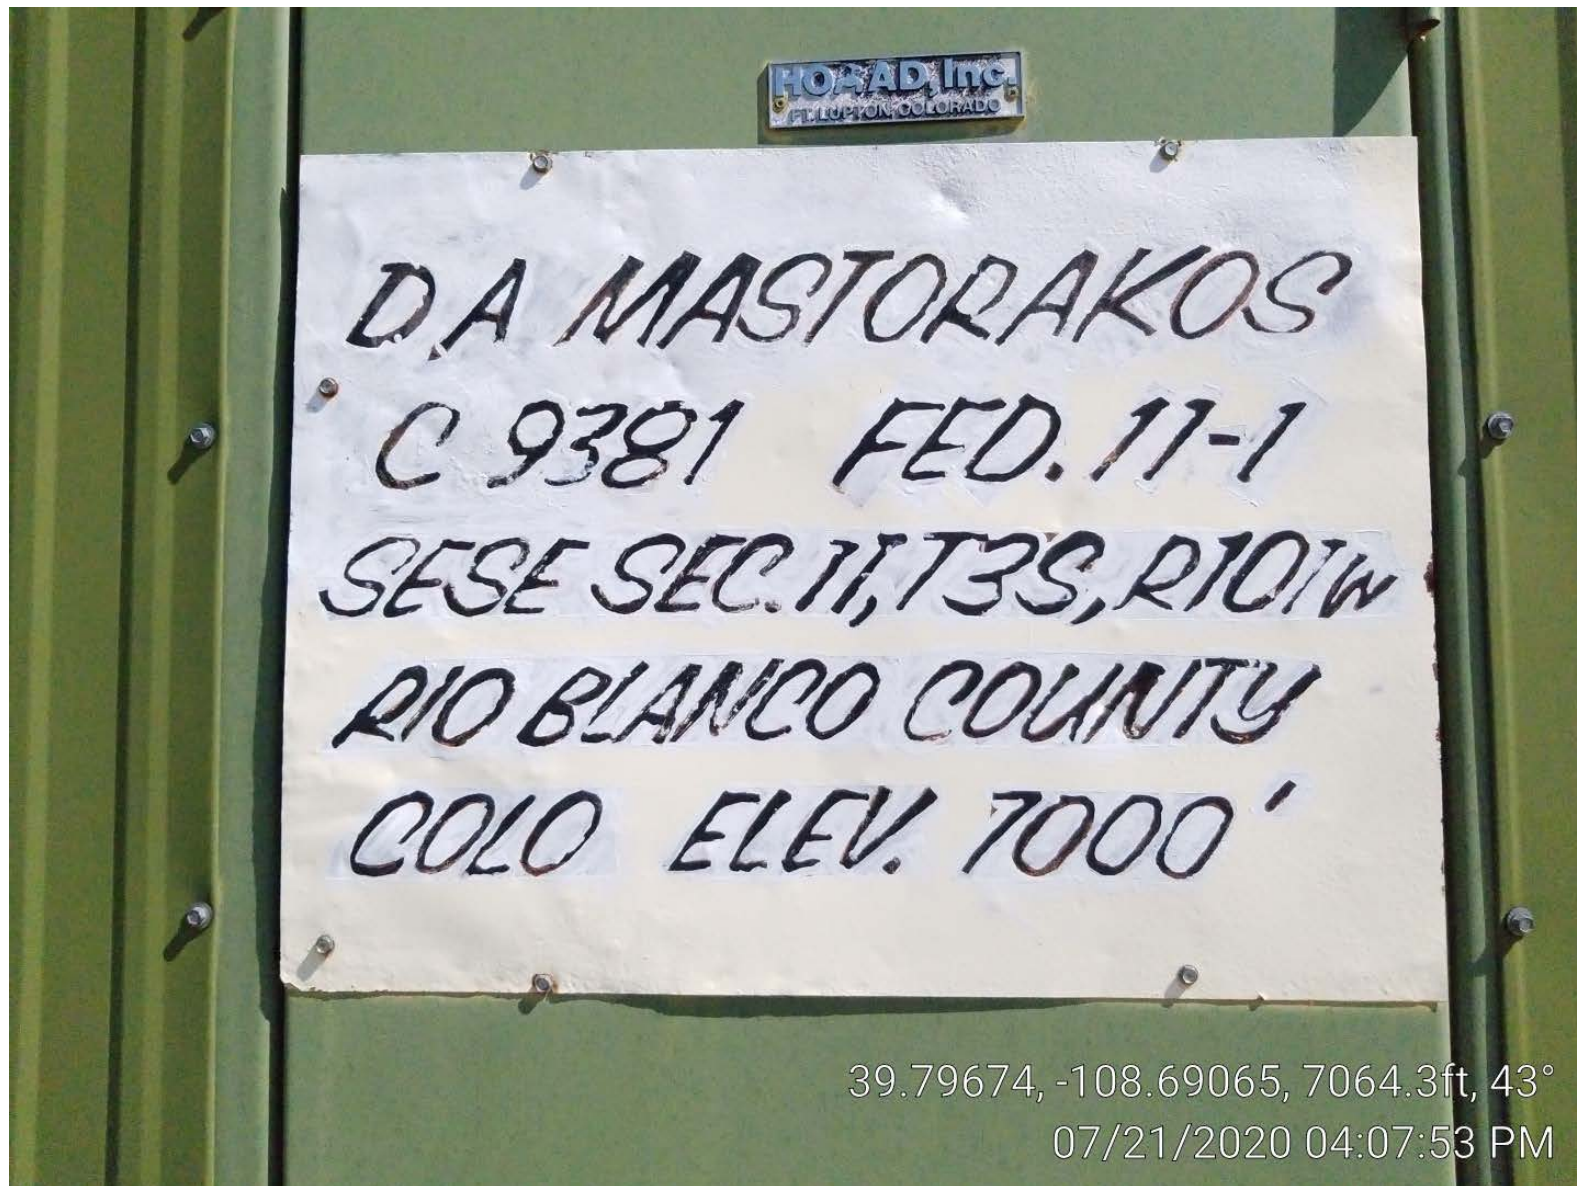 HOAD, Inc.
FT. LUPTON, COLORADO
D.A MASTORAKOS
C 9381 FED. 11-1
SESE SEC. 11, T3S, R101W
RIO BLANCO COUNTY
COLO ELEV. 7000'
39.79674, -108.69065, 7064.3ft, 43°
07/21/2020 04:07:53 PM